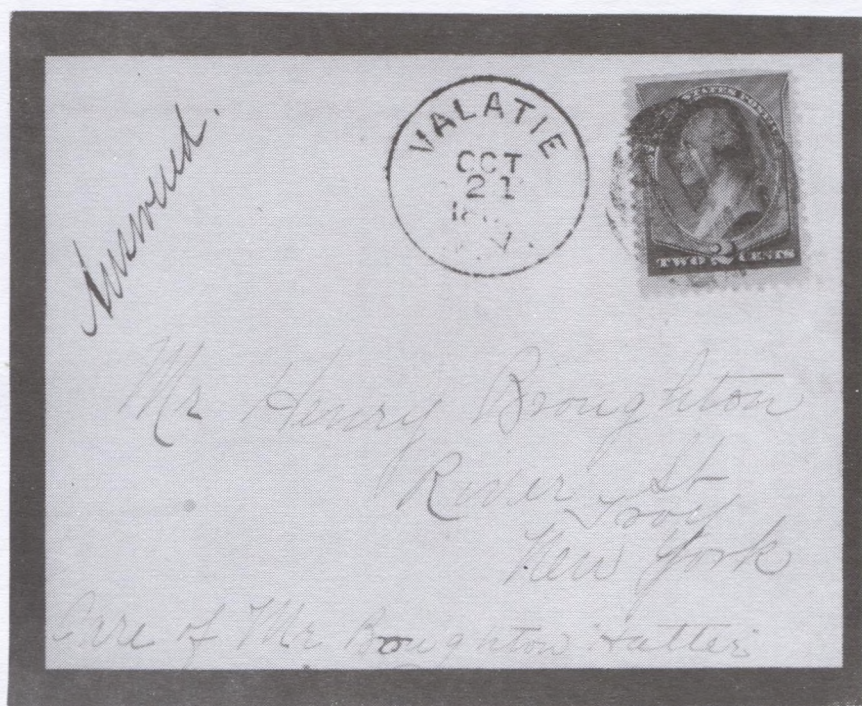 Answered.
VALATIE
OCT
21
UNITED STATES POSTAGE
2
TWO CENTS
Mr Henry Broughton
River St
Troy
New York
Care of Mr Boughton "Hatter"